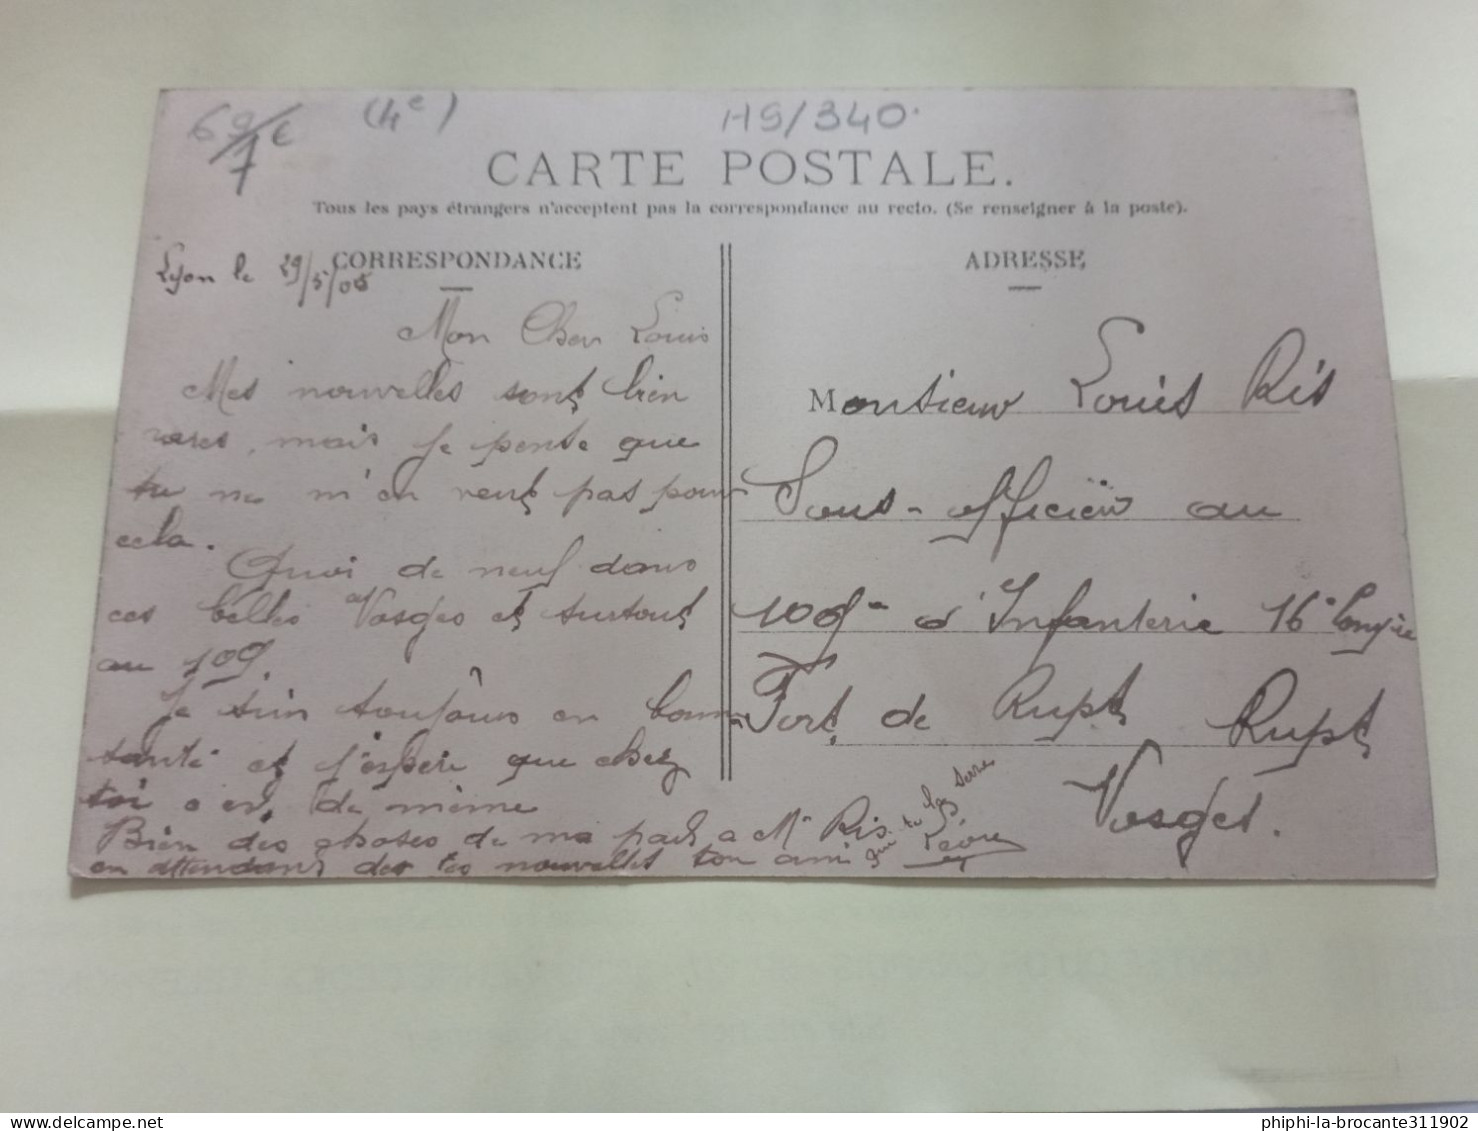 69/1 € (4e) 119/340.
CARTE POSTALE.
Tous les pays étrangers n'acceptent pas la correspondance au recto. (Se renseigner à la poste).
CORRESPONDANCE
Lyon le 29/5/05
Mon Cher Louis
Mes nouvelles sont bien
rares, mais je pense que
tu ne m'en veux pas pour
cela.
Quoi de neuf dans
ces belles Vosges et surtout
au 109.
Je suis toujours en bonne
santé et j'espère que chez
toi c'est de même
Bien des choses de ma part a Mr Ris
en attendant des tes nouvelles ton ami
qui te les
ADRESSE
Monsieur Louis Ris
Sous-officier au
109e d'Infanterie 16e Compie
Fort de Rupt Rupt
Vosges.
phiphi-la-brocante311902